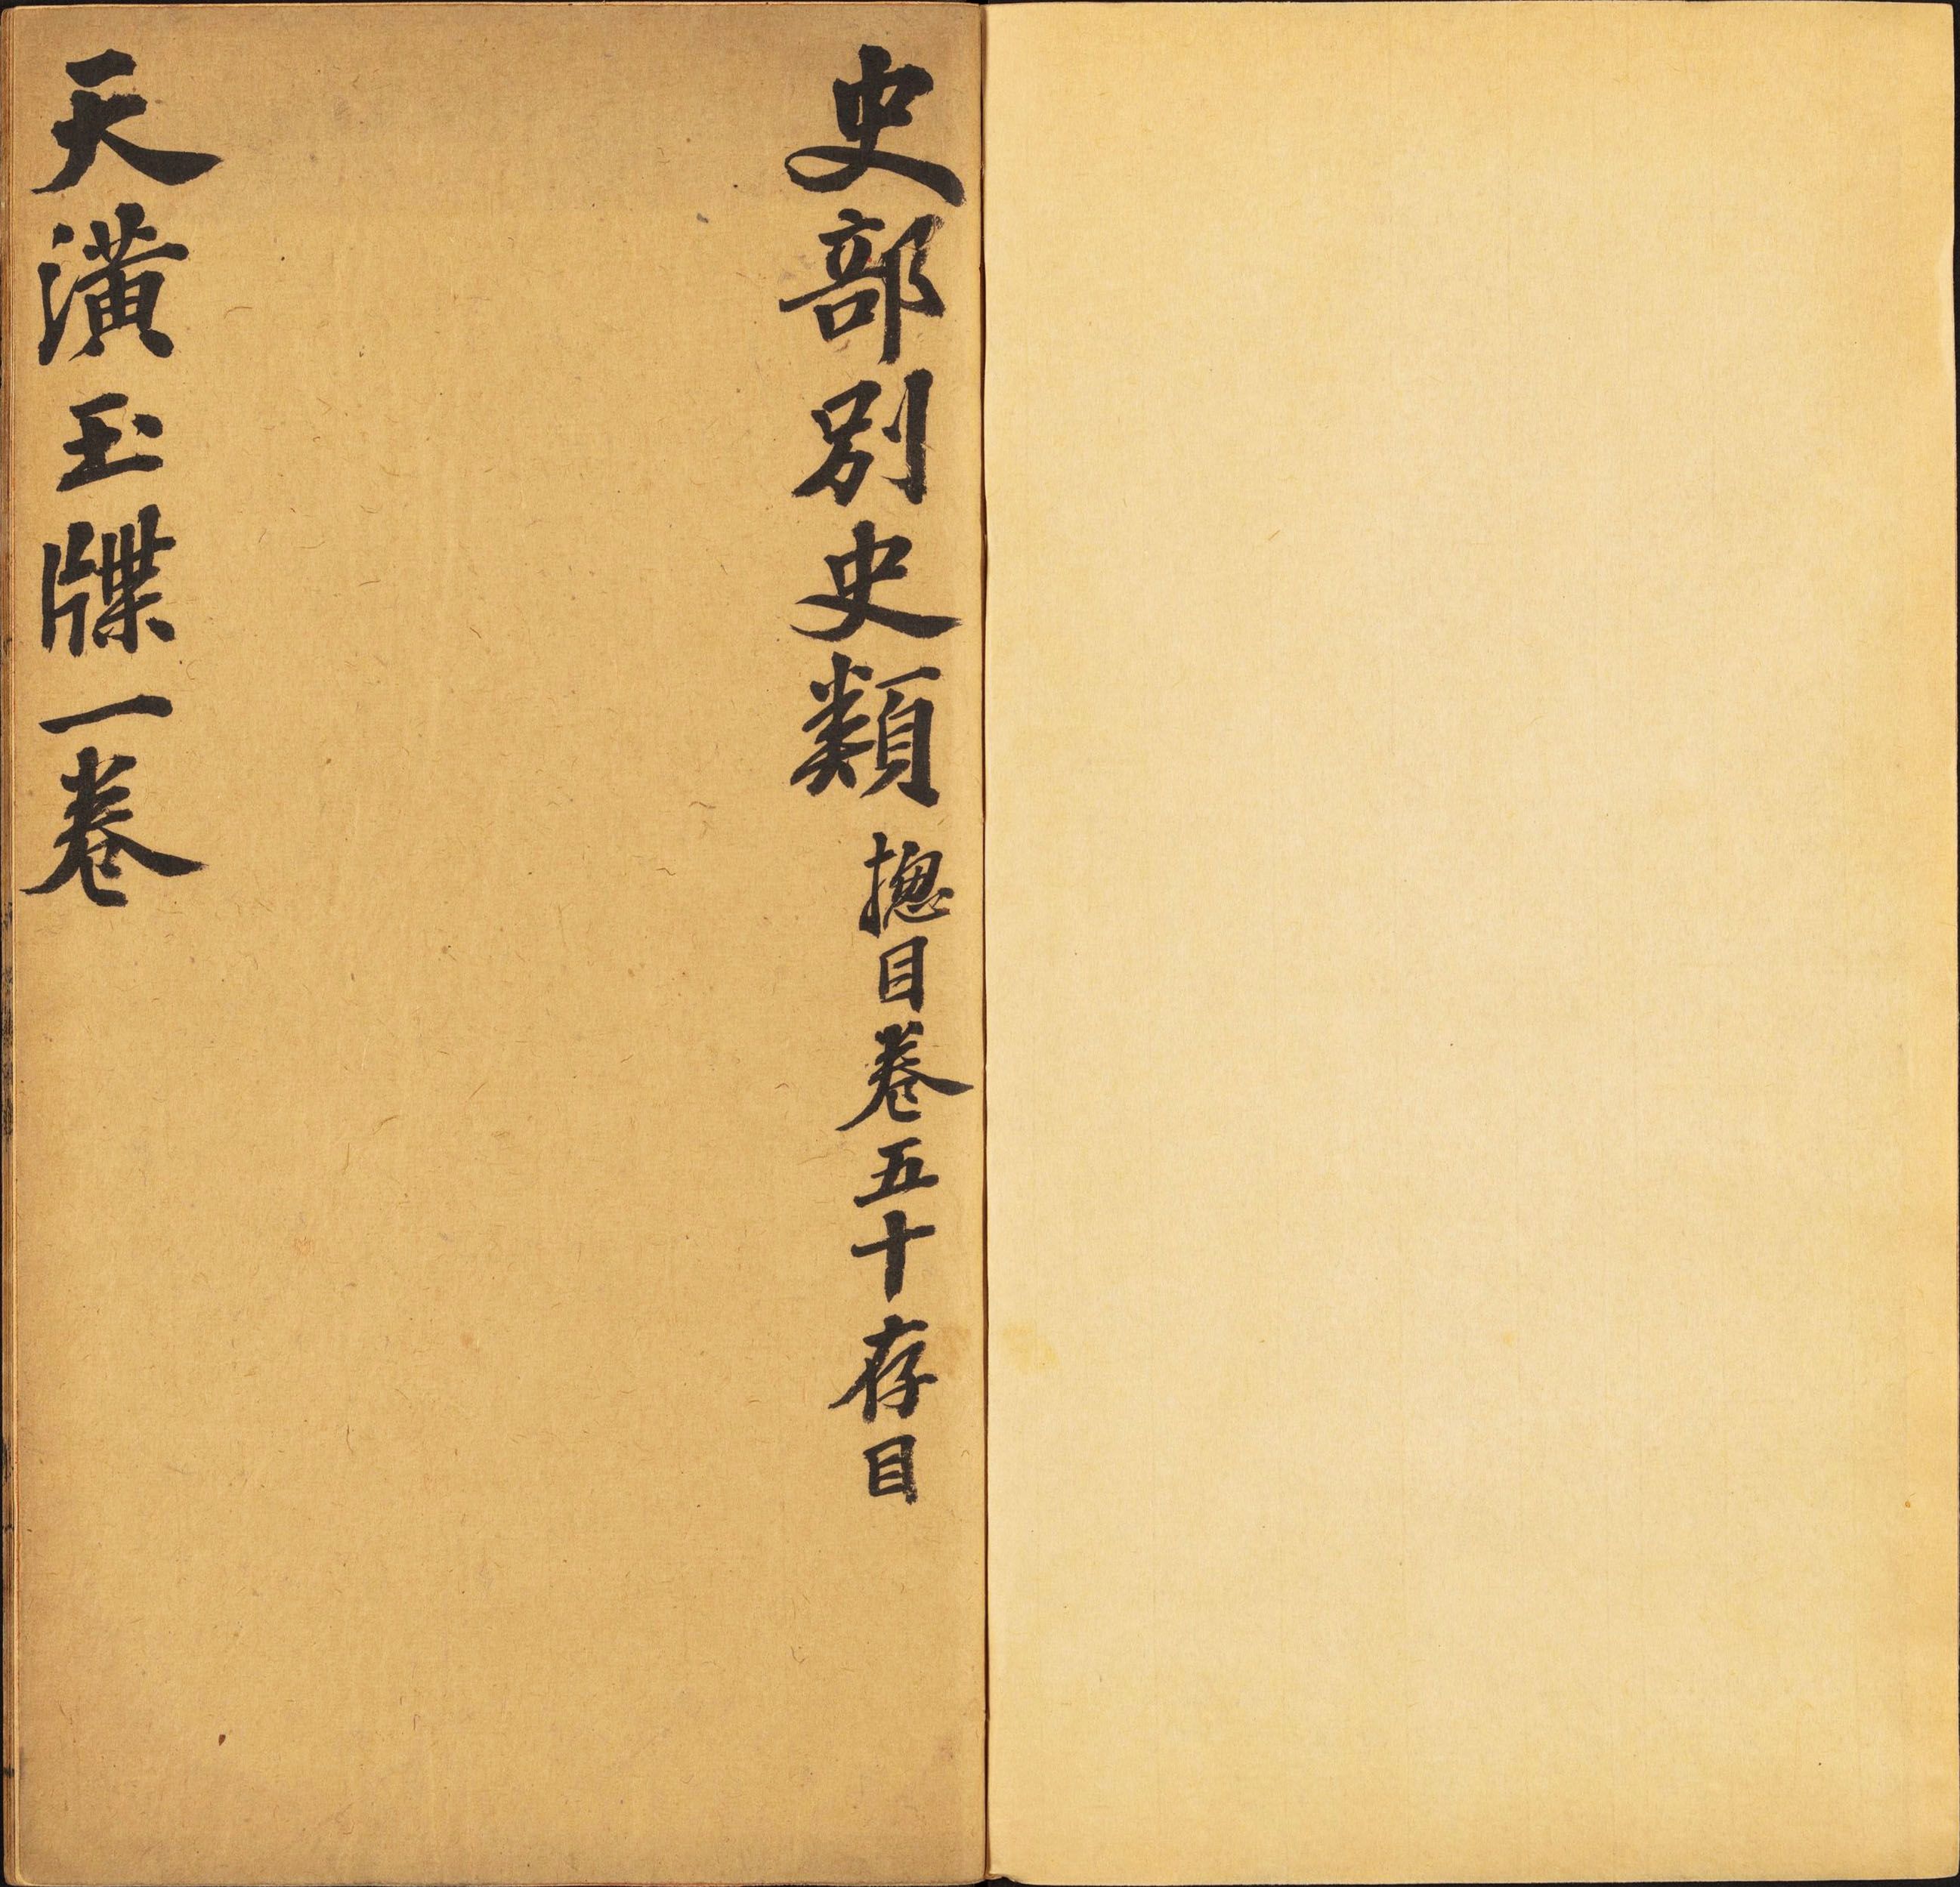 史部別史類 揔目卷五十存目
天潢玉牒一卷